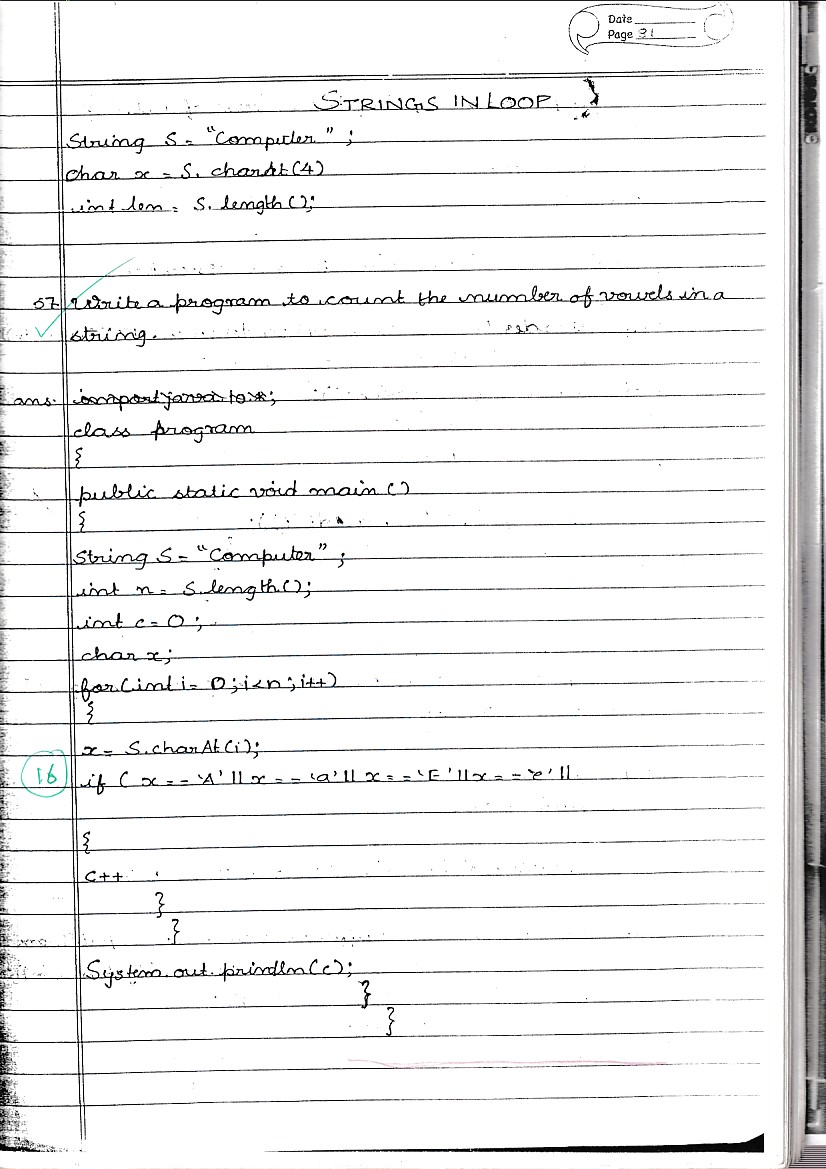 Date
Page 31
STRINGS IN LOOP.
String S = "Computer" ;
char x = S. charAt (4)
int len = S. length ();
57 Write a program to count the number of vowels in a
string.
ans. import java.io.*;
class program
{
public static void main ()
{
String S = "Computer" ;
int n = S.length();
int c = 0 ;
char x;
for (int i = 0 ; i<n ; i++)
{
x = S.charAt (i);
16 if ( x == 'A' || x == 'a' || x == 'E' || x == 'e' ||
{
C++
}
}
System.out.println (c);
}
}